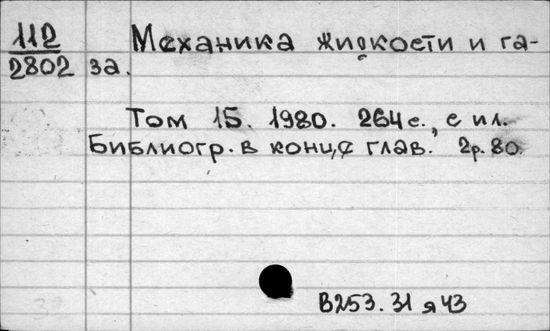 112 Механика жидкости и га-
2802 за.
Том 15. 1980. 264с., с ил.
Библиогр. в конце глав. 2р.80.
В253.31я43